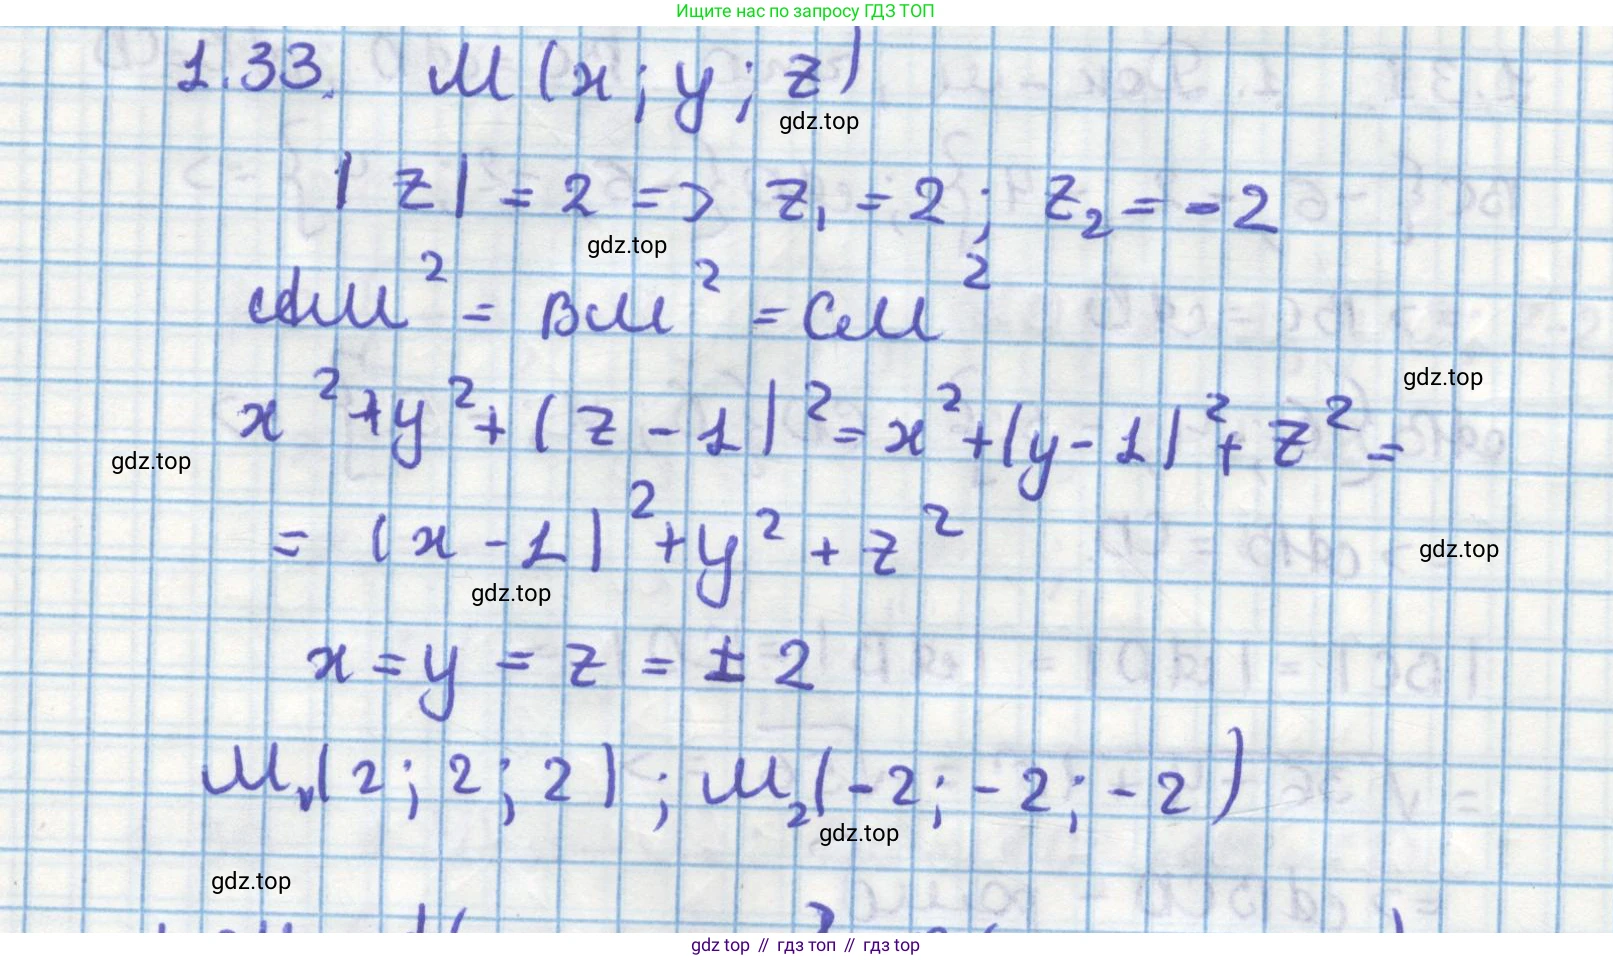 Ищите нас по запросу ГДЗ ТОП
1.33. M (x; y; z)
gdz.top
|z| = 2 => z₁ = 2; z₂ = -2
gdz.top
AM² = BM² = CM²
gdz.top
x² + y² + (z - 1)² = x² + (y - 1)² + z² =
gdz.top
= (x - 1)² + y² + z²
gdz.top
gdz.top
x = y = z = ± 2
M₁(2; 2; 2); M₂(-2; -2; -2)
gdz.top
gdz.top
gdz top // гдз топ // gdz top